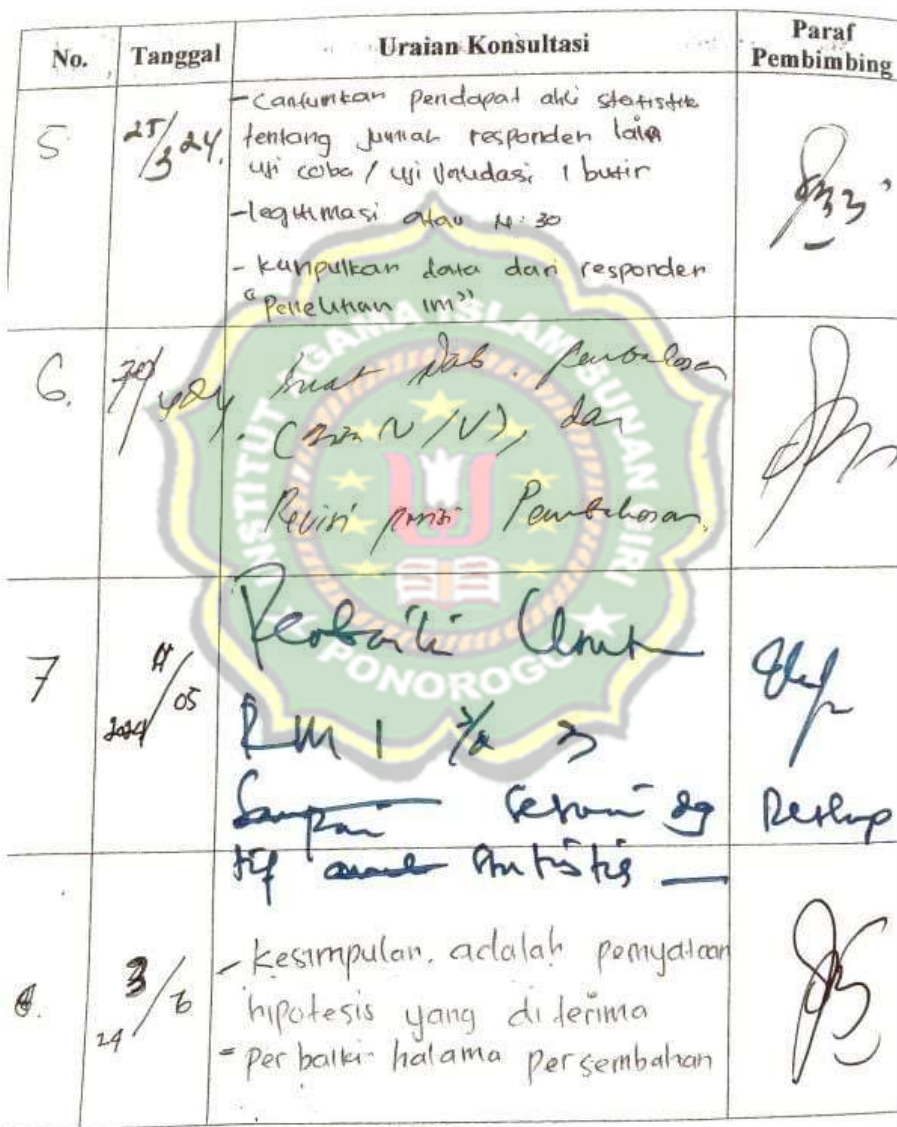 No. Tanggal Uraian Konsultasi Paraf Pembimbing
5 25/3 24. - Cantumkan pendapat ahli statistik
tentang jumlah responden lain
uji coba / uji validasi 1 butir
- legitimasi atau N: 30
- kumpulkan data dari responden
"Penelitian ini"
6. buat bab. pembahasan
(IV / V), dan
Revisi Pembahasan.
7 2024/05 Perbaiki
RM 1 s/d 3
Sampai sesuai dg
Statistis
3/6 24 - Kesimpulan. adalah pernyataan
hipotesis yang diterima
- perbaiki halama persembahan
INSTITUT AGAMA ISLAM SUNAN GIRI
PONOROGO